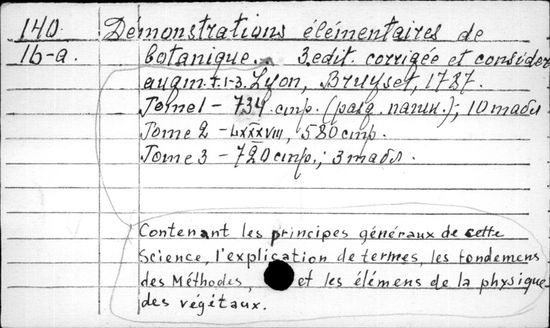 140. Démonstrations élémentaires de
16-a. botanique. 3.edit. corrigée et consider
augm. т.1-3. Lyon, Bruyset, 1787.
Tome 1 - 734 стр. (разд. пагин.); 10 табл
Tome 2 - LXXXVIII, 580 стр.
Tome 3 - 720 стр.; 3 табл.
Contenant les principes généraux de cette
Science, l'explication de termes, les fondemens
des Méthodes, et les élémens de la physique
des végétaux.